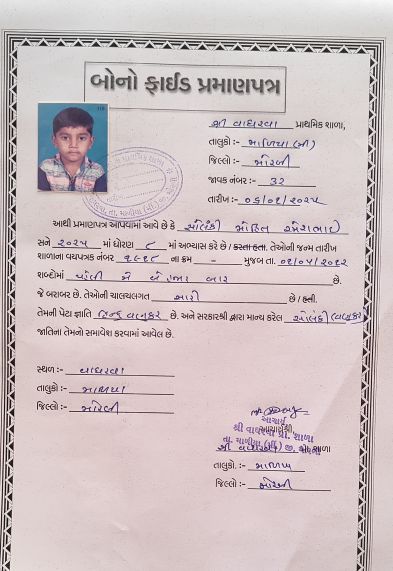 બોનો ફાઈડ પ્રમાણપત્ર
શ્રી વાધરવા પ્રાથમિક શાળા,
તાલુકો :- માળિયા (મી)
જિલ્લો :- મોરબી
જાવક નંબર :- ૩૨
તારીખ :- ૦૬/૦૧/૨૦૨૫
આથી પ્રમાણપત્ર આપવામાં આવે છે કે સોલંકી મોહિત રમેશભાઈ
સને ૨૦૨૫ માં ધોરણ ૮ માં અભ્યાસ કરે છે / કરતા હતા. તેઓની જન્મ તારીખ
શાળાના વયપત્રક નંબર ૨૯૧૮ ના ક્રમ - મુજબ તા. ૦૧/૦૫/૨૦૧૨
શબ્દોમાં પહેલી મે બે હજાર બાર છે.
જે બરાબર છે. તેઓની ચાલચલગત સારી છે / હતી.
તેમની પેટા જ્ઞાતિ હિન્દુ વણકર છે. અને સરકારશ્રી દ્વારા માન્ય કરેલ સોલંકી (વણકર)
જાતિના તેમનો સમાવેશ કરવામાં આવેલ છે.
સ્થળ :- વાધરવા
તાલુકો :- માળિયા
જિલ્લો :- મોરબી
આચાર્ય
આચાર્યશ્રી,
શ્રી વાધરવા પ્રા. શાળા
તા. માળીયા (મીં) જી. મોરબી
શ્રી વાધરવા પ્રા. શાળા
તાલુકો. :- માળિયા
જિલ્લો :- મોરબી